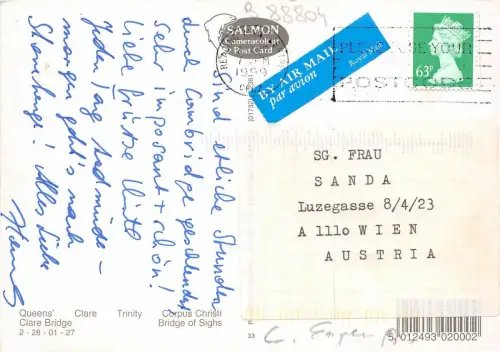 B 88804
SALMON
Cameracolour
Post Card
1999
BY AIR MAIL
par avion
Royal Mail
PLEASE USE YOUR
POSTCODE
63P
Sind etliche Stunden
durch Cambridge geschlendert
Sehr imposant + schön!
liebe Grüße
Jeden Tag todmüde –
morgen geht's nach
Stonehenge! Alles Liebe
SG. FRAU
SANDA
Luzegasse 8/4/23
A 1110 WIEN
AUSTRIA
Queens' Clare Trinity Corpus Christi
Clare Bridge Bridge of Sighs
2 - 28 - 01 - 27
33
5 012493 020002